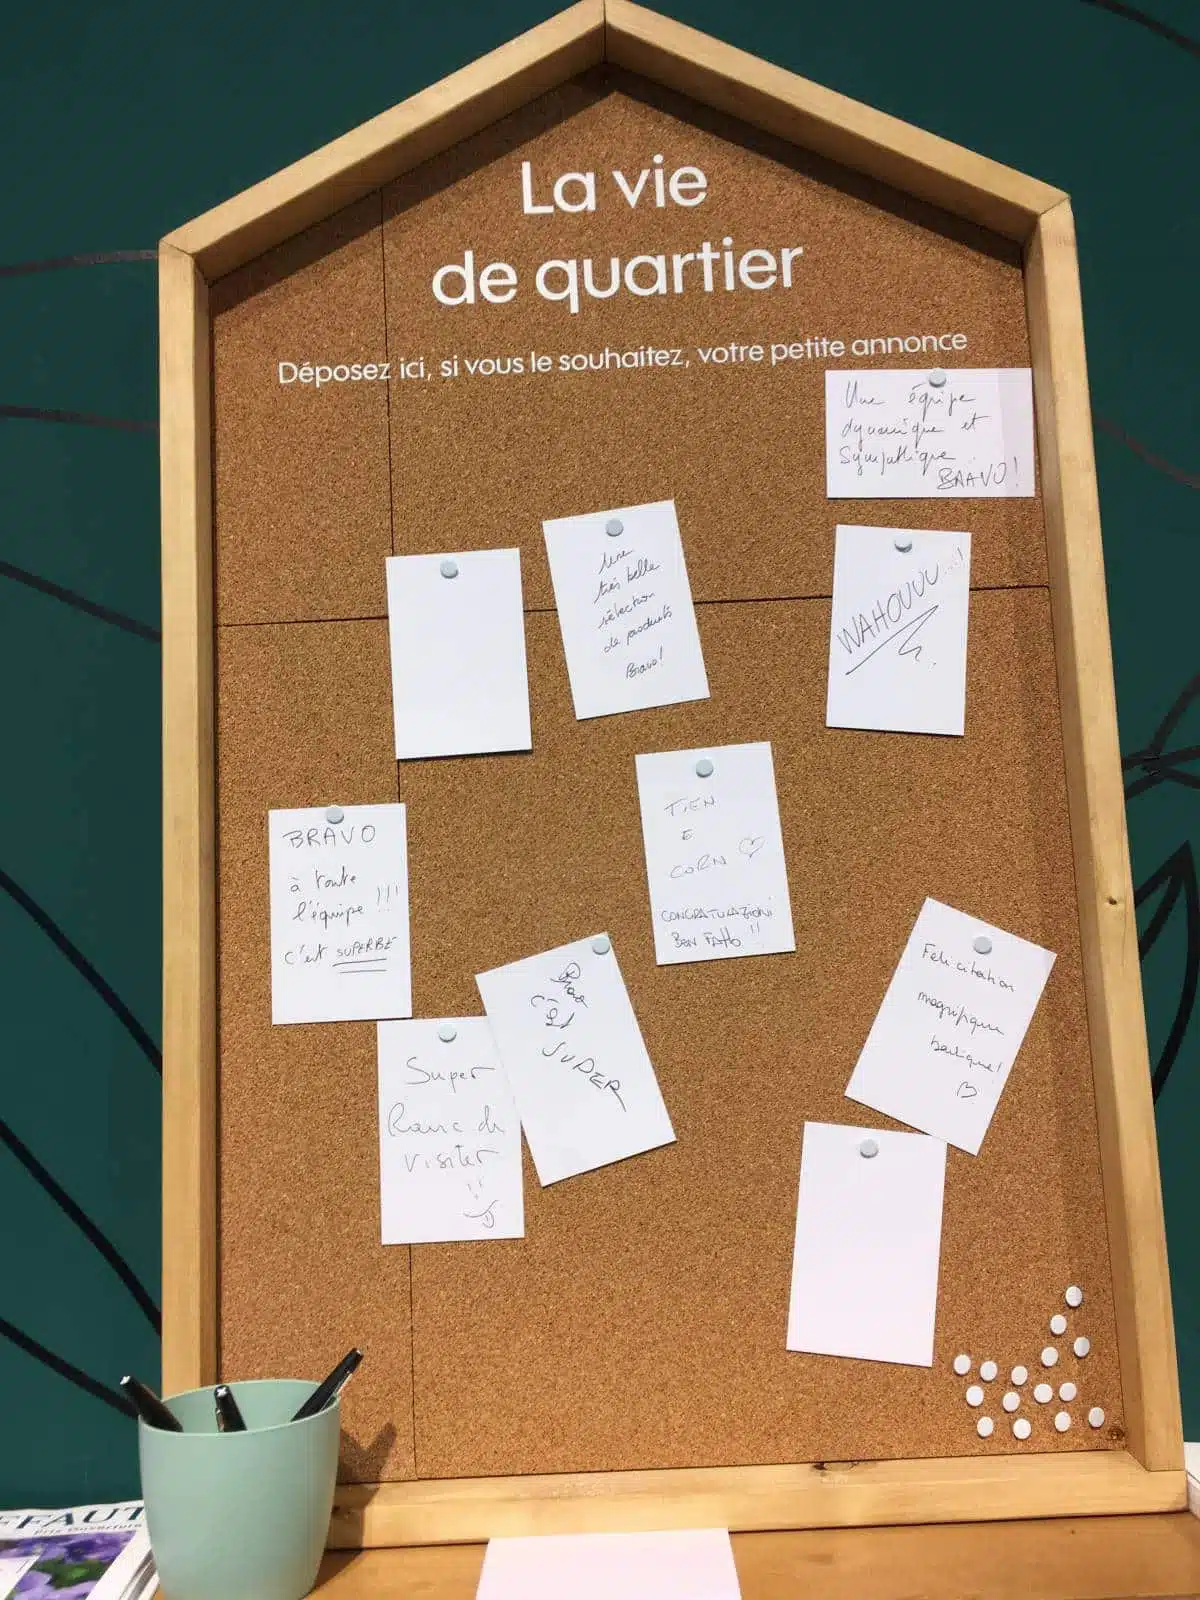 La vie
de quartier
Déposez ici, si vous le souhaitez, votre petite annonce
Une équipe
dynamique et
sympathique
BRAVO!
Une
très belle
sélection
de produits
Bravo!
WAHOUUU...!
TIEN
E
CORN
CONGRATULAZIONI
BEN FATTO !!
BRAVO
à toute
l'équipe !!!
c'est SUPERBE
Bravo
c'est
SUPER
Felicitation
magnifique
boutique!
Super
visiter
!!
FFAUT